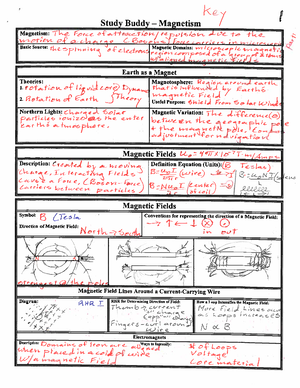 Key
Study Buddy – Magnetism
Magnetism: The force of attraction/repulsion due to the
motion of a charge
Basic Source: the spinning of electrons
Magnetic Domains: microscopic magnetic
region composed of a group of atoms
Earth as a Magnet
Theories:
1. rotation of liquid core) Dynamo
2. Rotation of Earth Theory
Magnetosphere: Region around earth
that is influenced by Earth's
magnetic Field
Useful Purpose: Shield From Solar Wind
Northern Lights: Charged Solar
particles enter
earth's atmosphere.
Magnetic Variation: The difference(θ)
between the geographic pole
& the magnetic pole. (conduct
adjustment for navigation)
Magnetic Fields
Description: Created by a moving
charge. Interacting Fields
cause a force. (Boson-force
carriers between particles)
Definition Equation (Units): (B Tesla)
(wire)
Magnetic Fields
Symbol B (Tesla)
Conventions for representing the direction of a Magnetic Field:
→ ↑ ← ↓
in out
Direction of Magnetic Field: North → South
strongest @ the poles
Magnetic Field Lines Around a Current-Carrying Wire
Diagram: RHR I
RHR for Determining Direction of Field:
Thumb-current
Fingers-curl around
Wire
How a Loop Intensifies the Magnetic Field:
More Field lines
as loops increases
N α B
Electromagnets
Description: Domains of iron are aligned
when placed in a coil of wire
w/a magnetic Field
Ways to Intensify:
# of Loops
Voltage
Core material